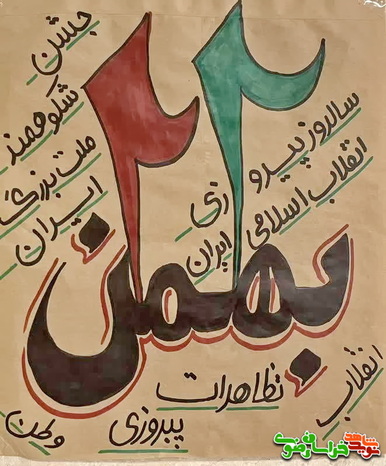 ۲۲
بهمن
سالروز پیروزی
انقلاب اسلامی ایران
جشن
شکوهمند
ملت بزرگ
ایران
انقلاب
تظاهرات
پیروزی
وطن